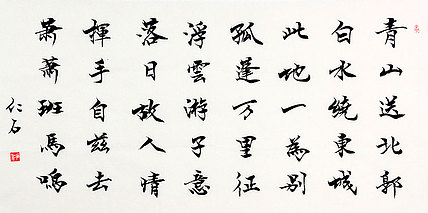 青山送北郭
白水繞東城
此地一為別
孤蓬万里征
浮雲游子意
落日故人情
揮手自茲去
蕭蕭班馬鳴
仁石